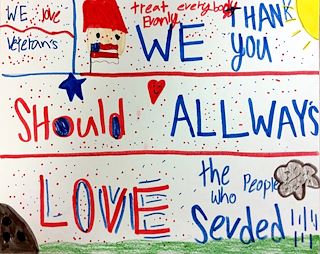 WE love
Veterans
treat everybody
Evanly
THANK
YOU
WE
Should ALLWAYS
LOVE
the People
who
Sevded